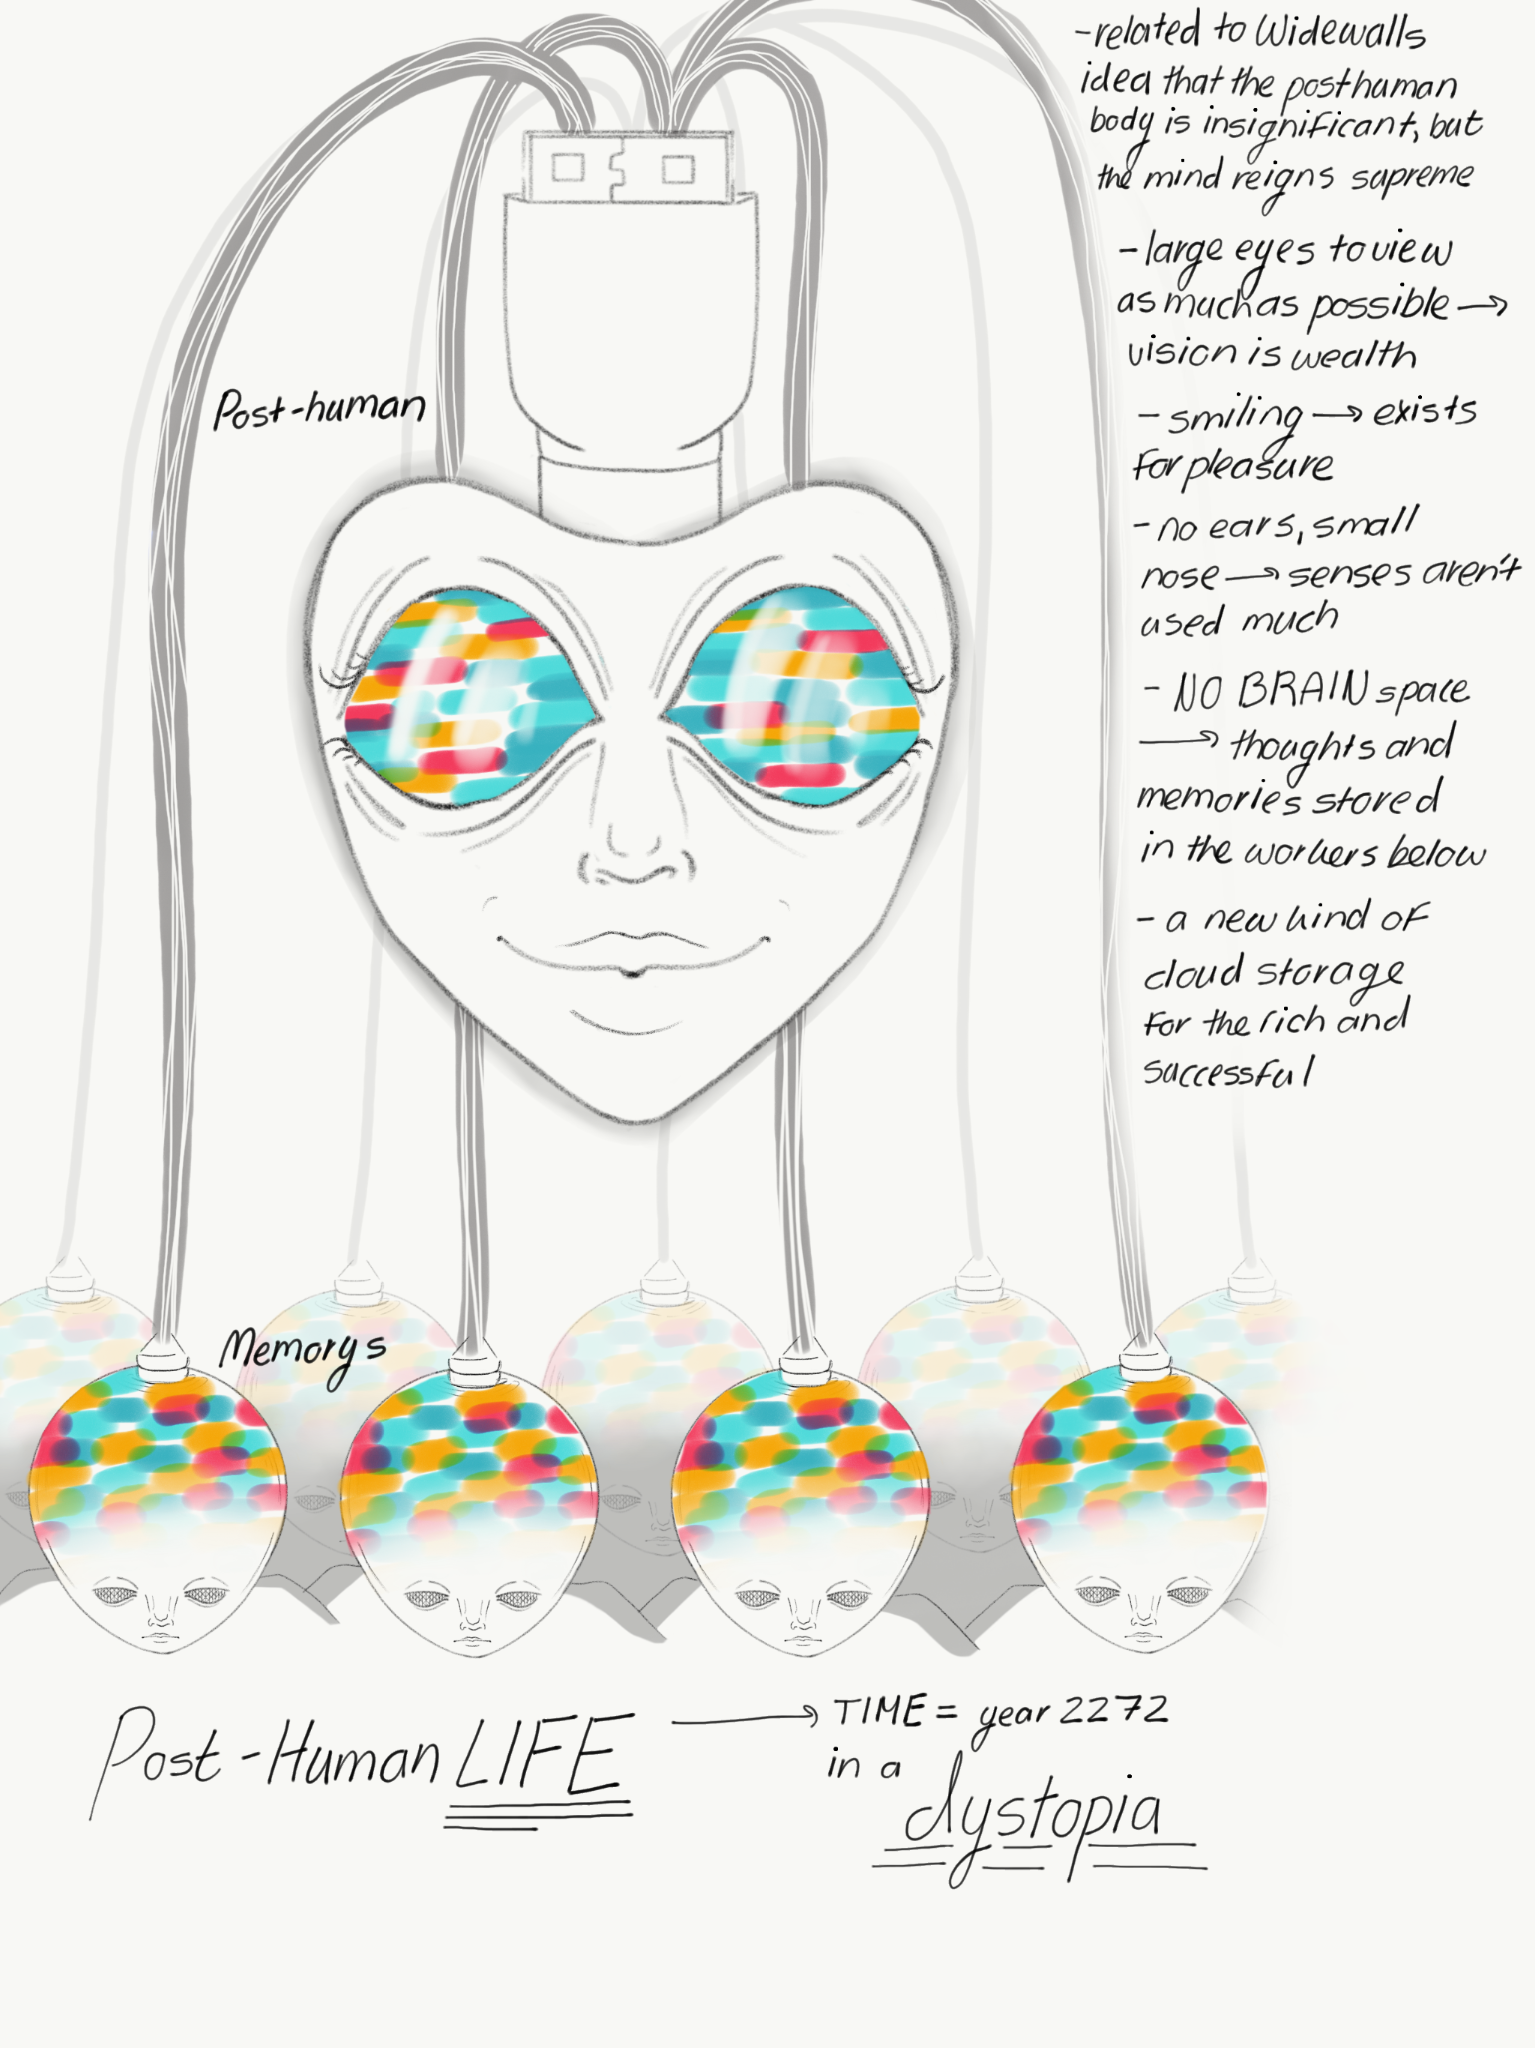 -related to Widewalls
idea that the posthuman
body is insignificant, but
the mind reigns supreme
- large eyes to view
as much as possible →
vision is wealth
- smiling → exists
for pleasure
- no ears, small
nose → senses aren't
used much
- NO BRAIN space
→ thoughts and
memories stored
in the workers below
- a new kind of
cloud storage
for the rich and
successful
Post-human
Memorys
Post-Human LIFE → TIME = year 2272
in a
dystopia